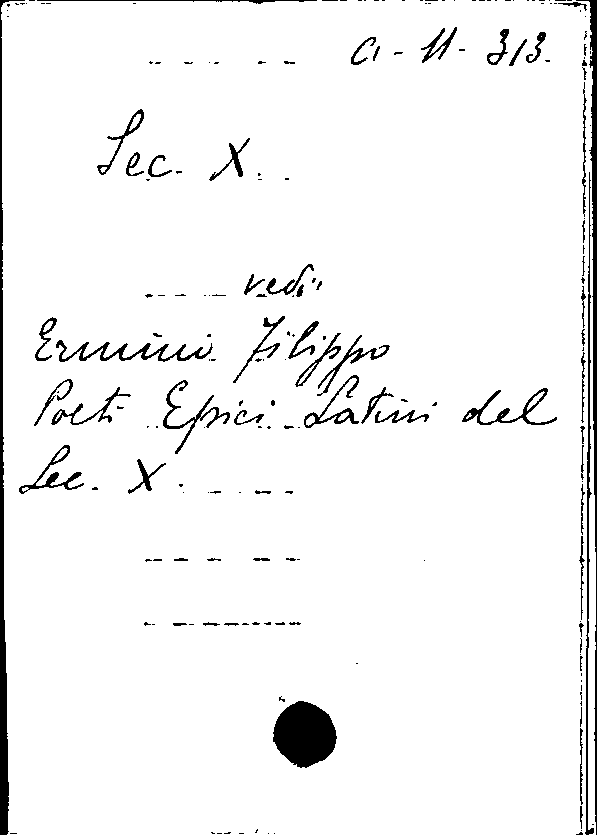 a-11-313.
Sec. X.
vedi
Ermini Filippo
Poeti Epici Latini del
Sec. X.